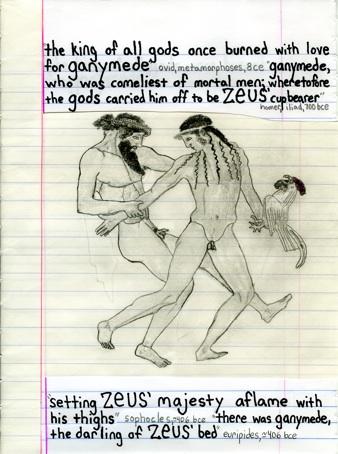 the king of all gods once burned with love
for ganymede" ovid, metamorphoses, 8 ce "ganymede,
who was comeliest of mortal men; wherefore
the gods carried him off to be ZEUS' cupbearer"
homer, iliad, 700 bce
"setting ZEUS' majesty aflame with
his thighs" sophocles, ~406 bce "there was ganymede,
the darling of ZEUS' bed" euripides, ~406 bce